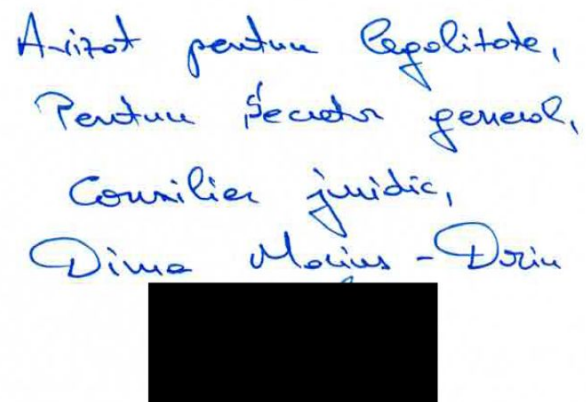 Avizat pentru legalitate,
Pentru Secretar general,
Consilier juridic,
Dima Marius - Dorin